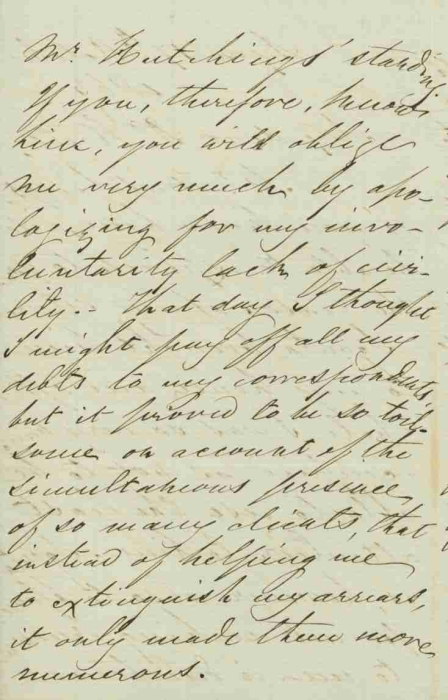 Mr. Hutchings' standing.
If you, therefore, know
him, you will oblige
me very much by apo-
logizing for my invo-
luntarily lack of civi-
lity. - That day I thought
I might pay off all my
debts to my correspondents,
but it proved to be so toil-
some on account of the
simultaneous presence
of so many clients, that
instead of helping me
to extinguish my arrears,
it only made them more
numerous.